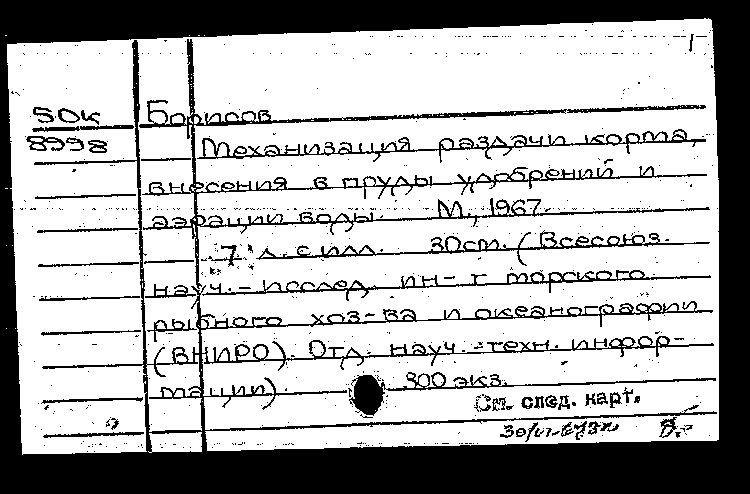 1
50к Борисов
8998 Механизация раздачи корма,
внесения в пруды удобрений и
аэрации воды. М., 1967.
7 л. с илл. 30см. (Всесоюз.
науч.-исслед. ин-т морского
рыбного хоз-ва и океанографии
(ВНИРО). Отд. науч.-техн. инфор-
мации). 300 экз.
См. след. карт.